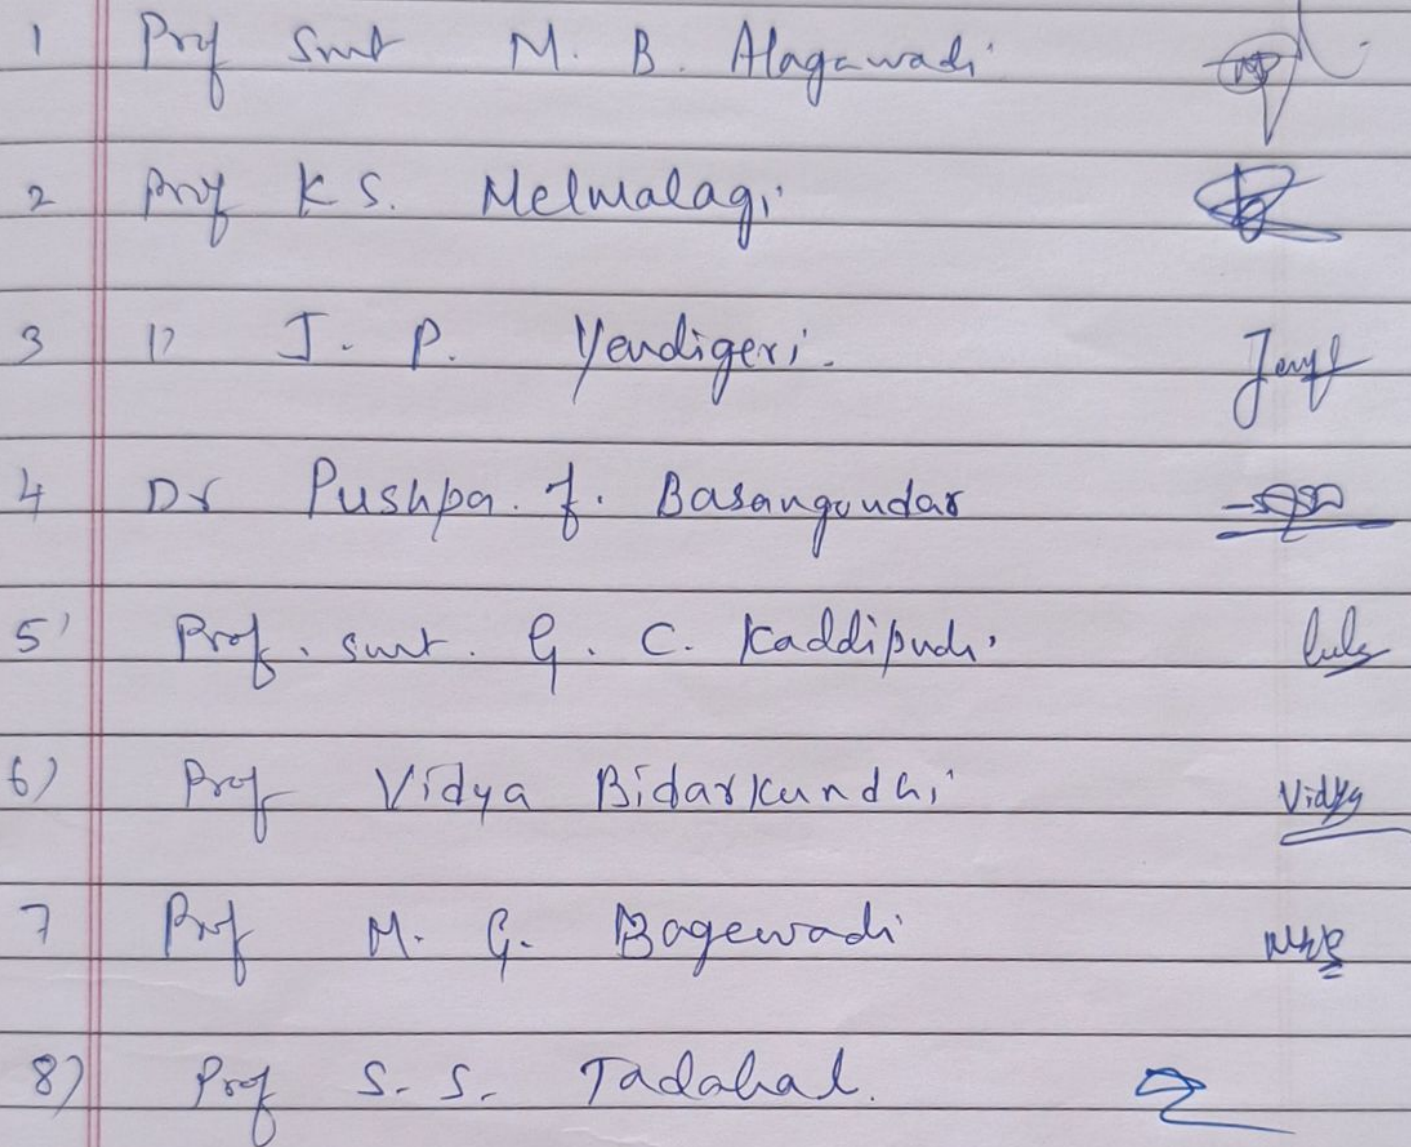 1 Prof Smt M. B. Alagawadi
2 Prof K S. Melmalagi
3 " J. P. Yendigeri.
4 Dr Pushpa. F. Basangoudar
5) Prof. smt. G. C. Kaddipudi
6) Prof Vidya Bidarkundhi Vidya
7 Prof M. G. Bagewadi
8) Prof S. S. Tadahal.